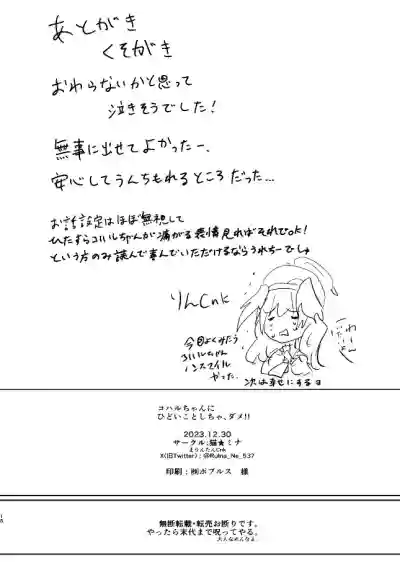 あとがき
くそがき
おわらないかと思って
泣きそうでした!
無事に出せてよかったー、
安心してうんちもれるところだった…
お話設定はほぼ無視して
ひたすらコハルちゃんが痛がる表情見ればそれでok!
という方のみ読んで喜んでいただけるならうれちーでしゅ
りんCnk
今回よくみたら
コハルちゃん
ノンスマイル
やった。
次は幸せにするヨ
コハルちゃんに
ひどいことしちゃ、ダメ!!
2023.12.30
サークル:猫★ミナ
まりんたんCnk
X(旧Twitter):@Rulina_No_537
印刷:㈱ポプルス 様
無断転載・転売お断りです。
やったら末代まで呪ってやる。